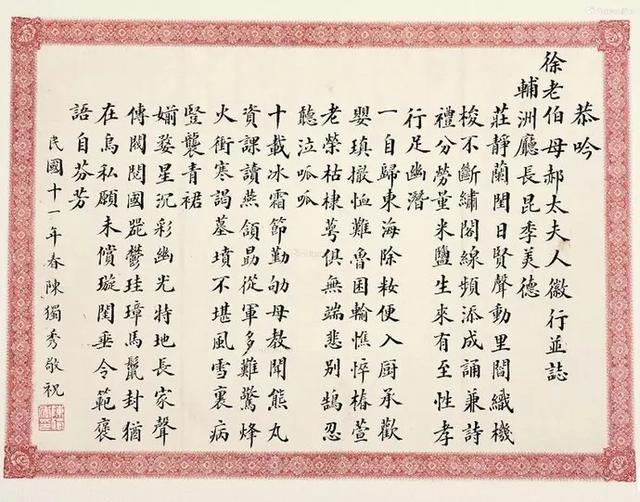 恭吟
徐老伯母郝太夫人徽行並誌
輔洲廳長昆季美德
莊靜蘭閨日賢聲動里閭織機
梭不斷繡閣線頻添成誦兼詩
禮分勞量米鹽生來有至性孝
行足幽潛
一自歸東海除妝便入厨承歡
嬰瑱撤恤難魯困輸憔悴椿萱
老榮枯棣萼俱無端悲别鵠忍
聽泣呱呱
十載冰霜節勤劬母教聞熊丸
資課讀燕頷勗從軍多難驚烽
火銜寒謁墓墳不堪風雪裏病
豎襲青裙
婺星沉彩幽光特地長家聲
傳閥閱國器鬱珪璋馬鬣封猶
在烏私願未償璇閨垂令範襃
語自芬芳
民國十一年春陳獨秀敬祝